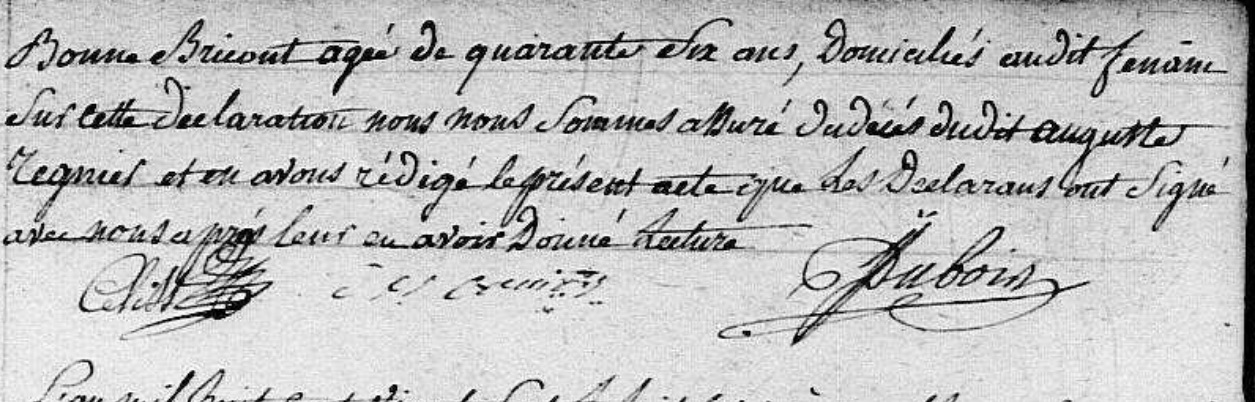 Bonne Bricout agée de quarante six ans, Domiciliés audit fenain
Sur cette declaration nous nous sommes assuré du décés dudit auguste
regnier et en avons rédigé le présent acte que les Declarans ont signé
avec nous aprés leur en avoir Donné Lecture
Dubois
L'an mil huit cent